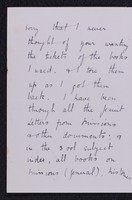 very that I never
thought of your wanting
the tickets of the books
I used, & I tore them
up as I got them
back. I have been
through all the
letters from Missions
& other documents; &
in the vol subject
index, all books on
missions (general),